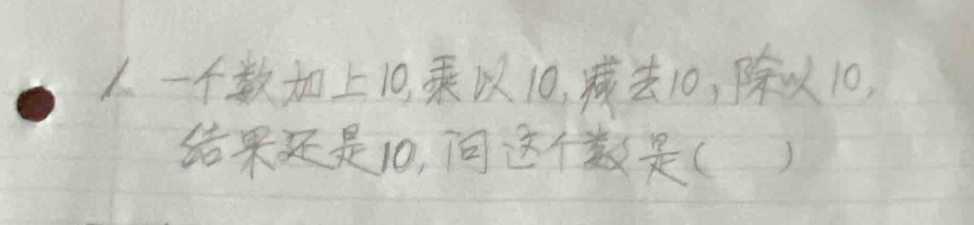 1. 一个数加上10,乘以10,减去10,除以10,
结果还是10,问这个数是( )